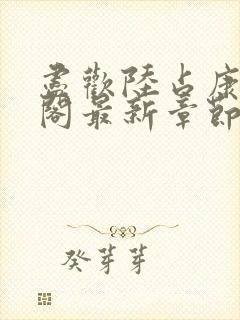 盡歡陸占康
閣最新章節
癸芽芽